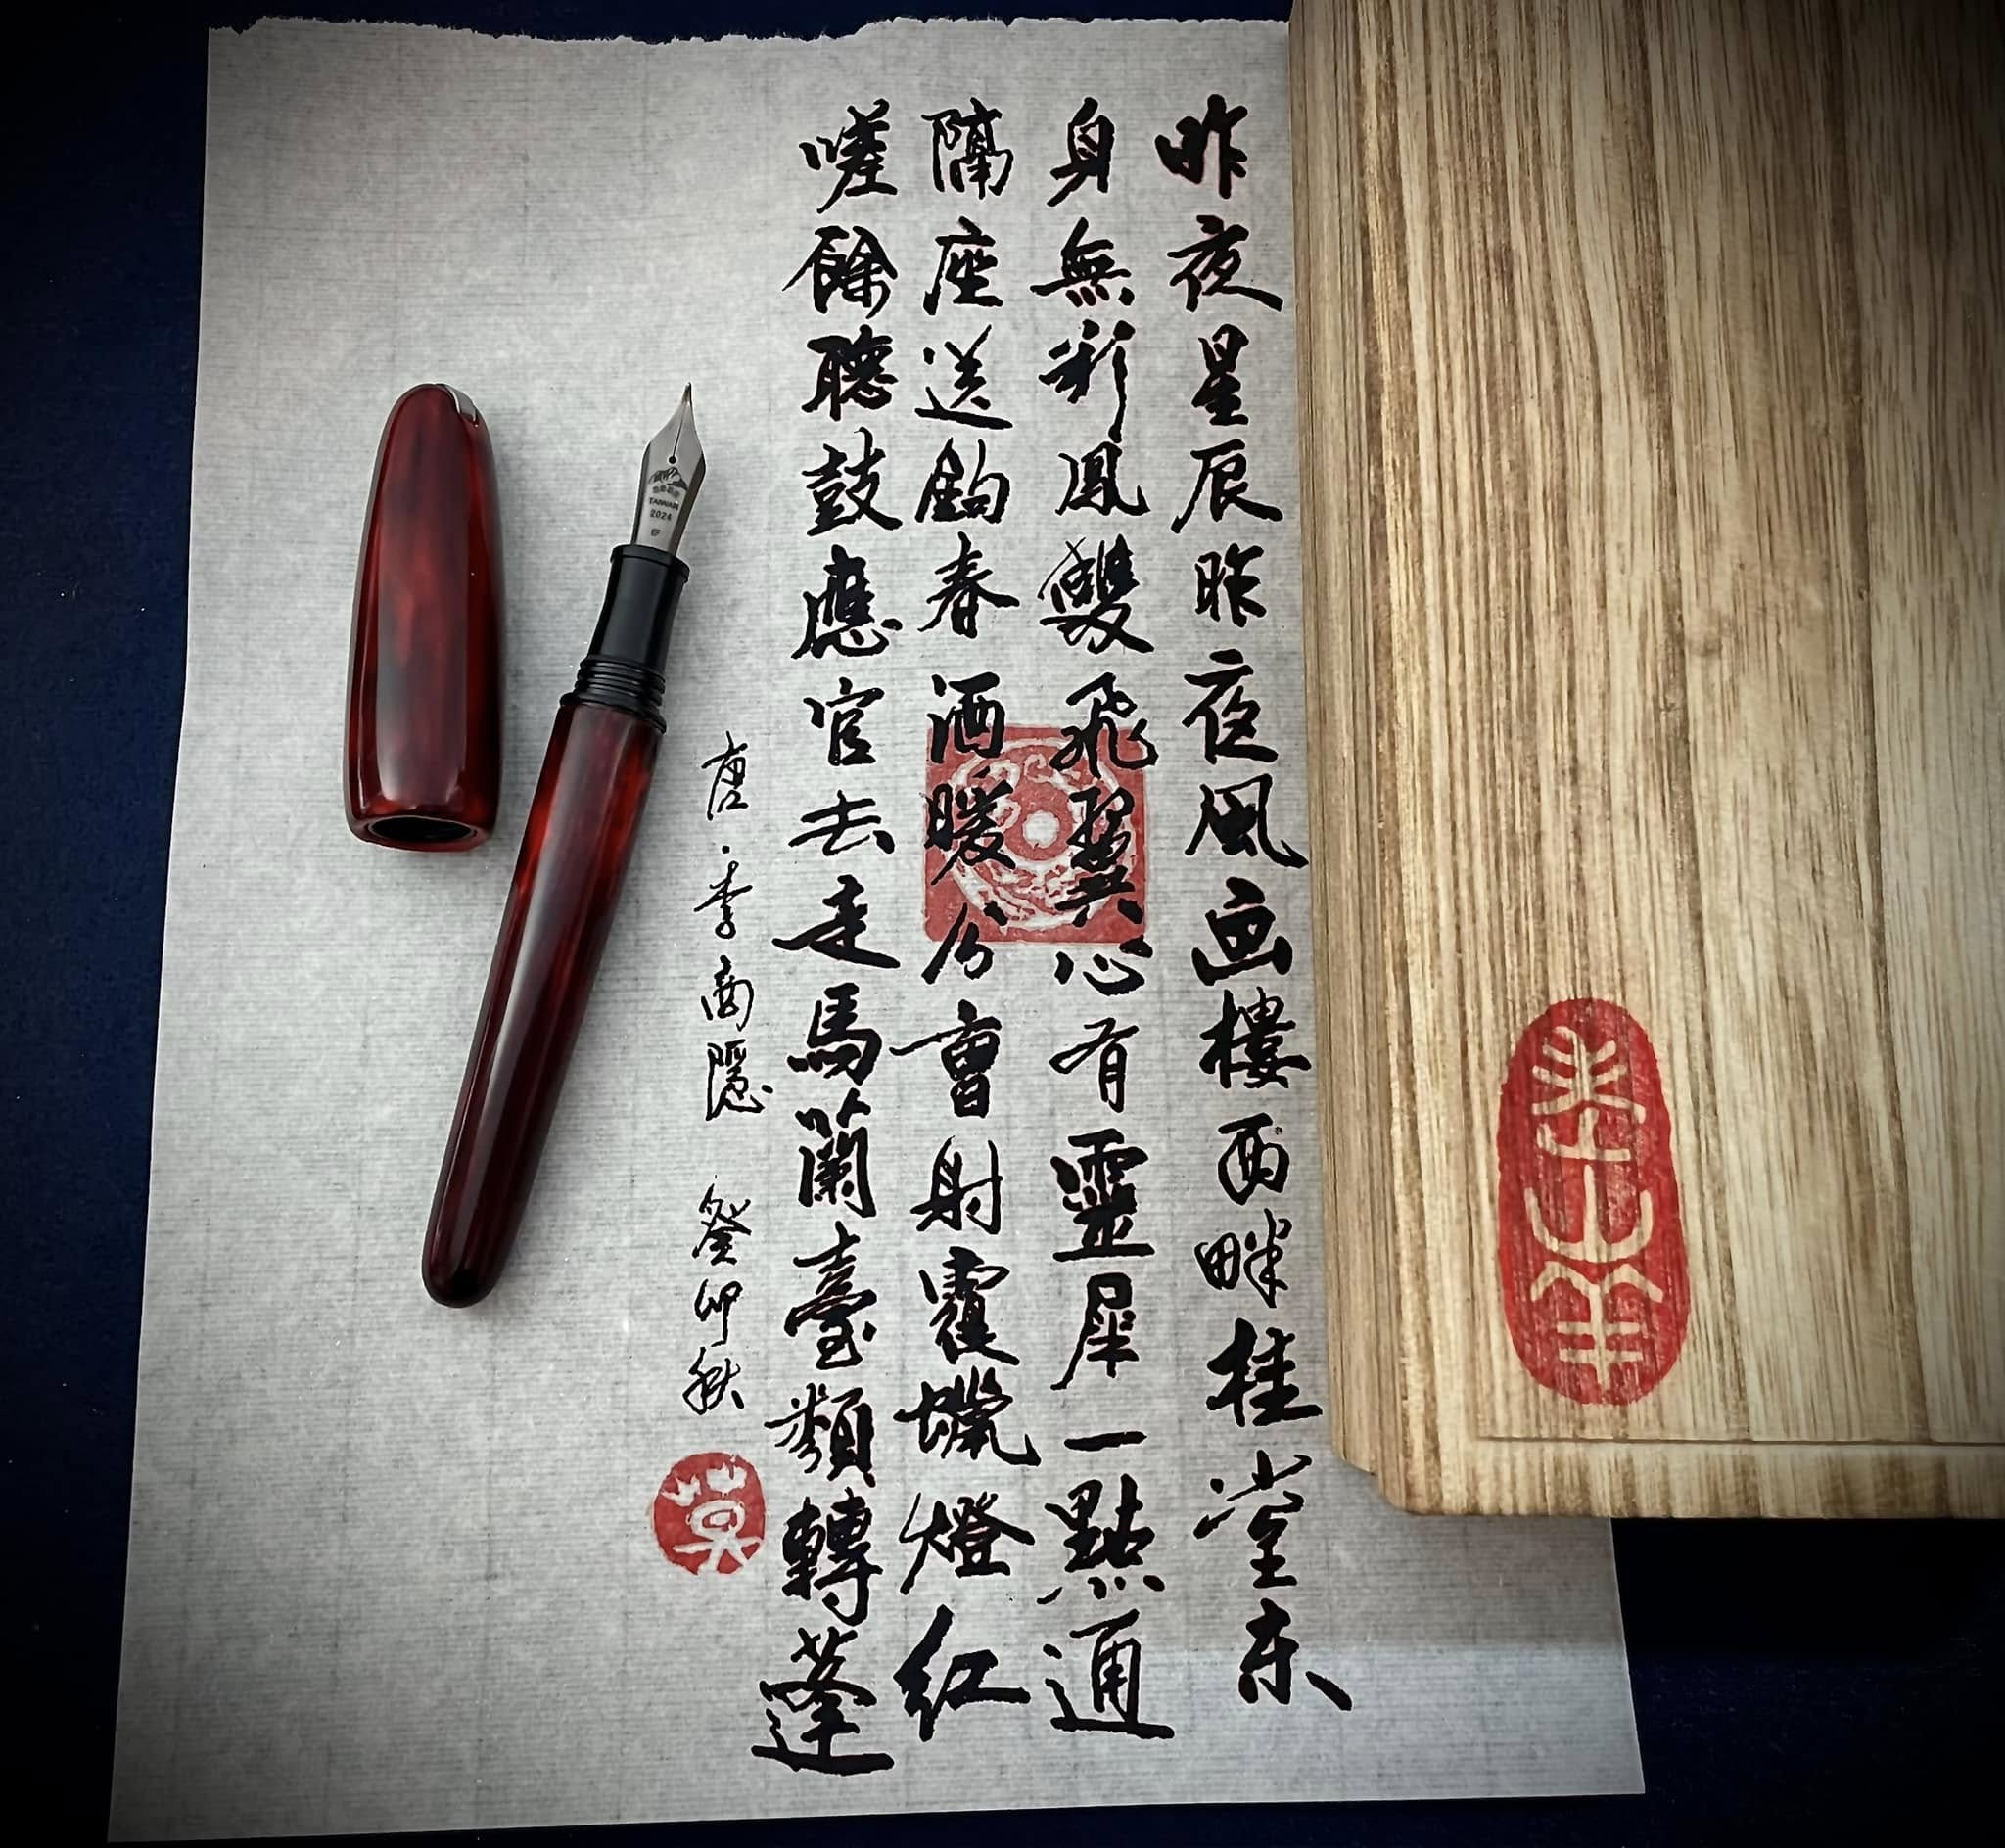 昨夜星辰昨夜風画樓西畔桂堂东
身無彩鳳雙飛翼心有靈犀一點通
隔座送鈎春酒暖分曹射覆蠟燈紅
嗟餘聽鼓應官去走馬蘭臺類轉蓬
唐·李商隱 癸卯秋
TAIWAN
2024
EF